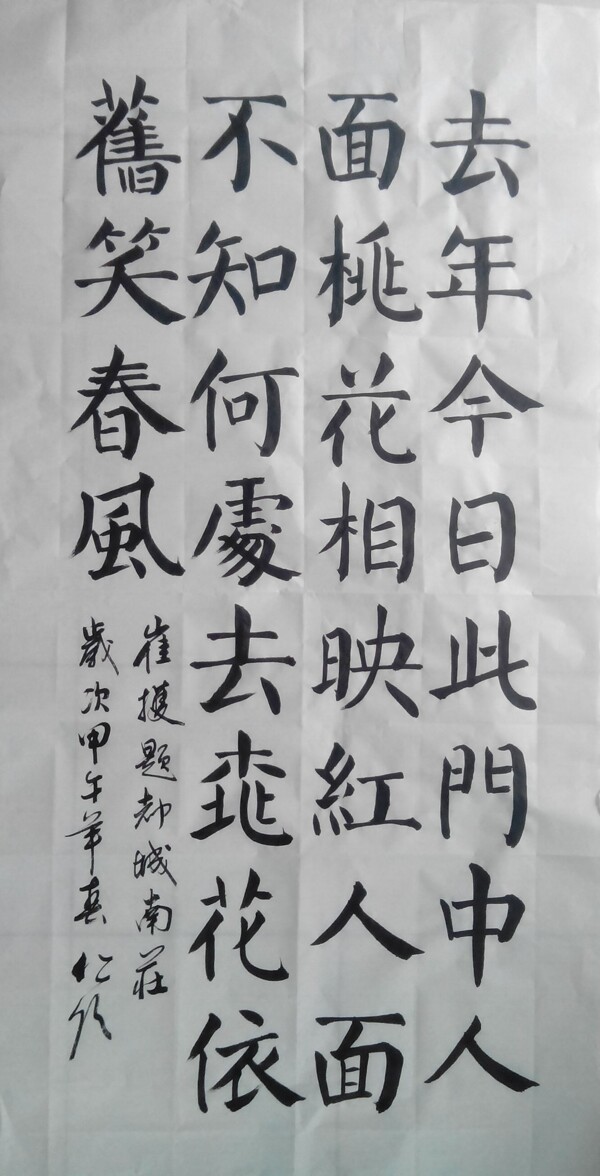 去年今日此門中人
面桃花相映紅人面
不知何處去桃花依
舊笑春風
崔護題都城南莊
歲次甲午年春